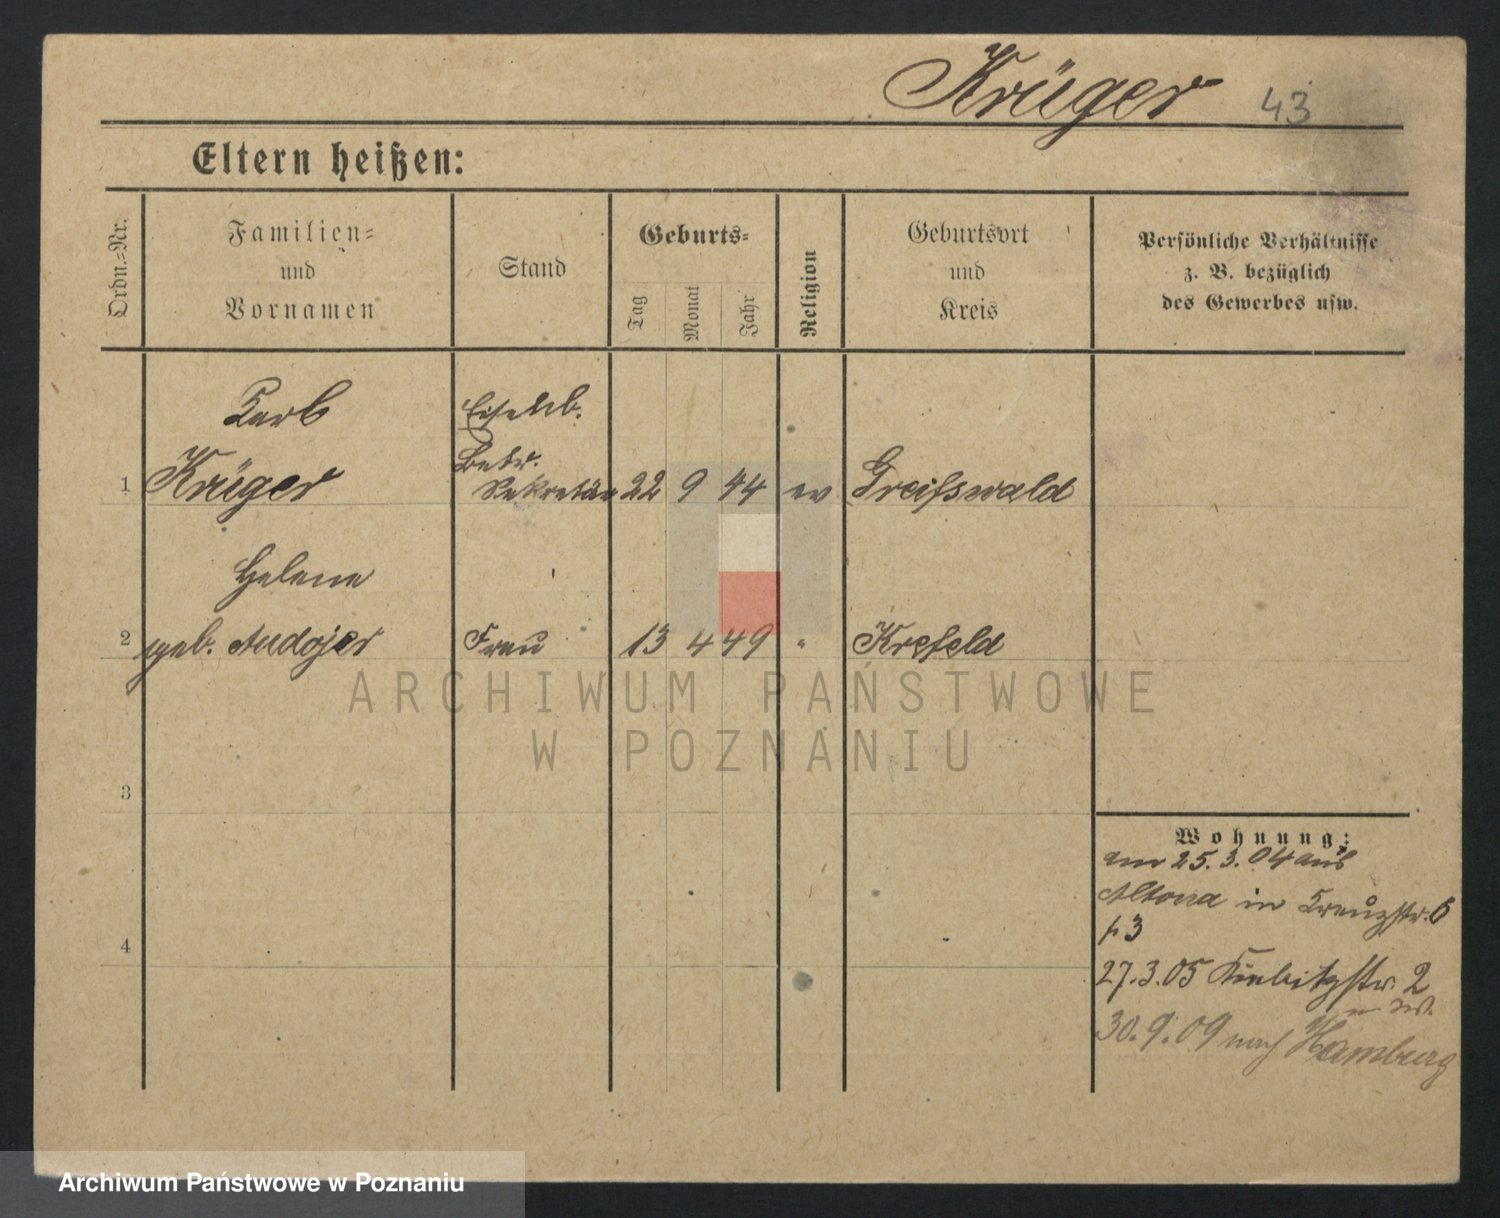 Krüger 43
Eltern heißen:
Ordn.-Nr.
Familien-
und
Vornamen
Stand
Geburts-
Tag
Monat
Jahr
Religion
Geburtsort
und
Kreis
Persönliche Verhältnisse
z. B. bezüglich
des Gewerbes usw.
Karl Eisenb.
Betr.
1 Krüger Sekretär 22 9 44 ev Greifswald
Helene
2 geb. Frau 13 4 49 " Krefeld
ARCHIWUM PAŃSTWOWE
W POZNANIU
3
Wohnung:
am 25.3.04 aus
Altona in Kreuzstr. 6
p 3
4
27.3.05 Kiebitzstr. 2
30.9.09 nach Hamburg
Archiwum Państwowe w Poznaniu